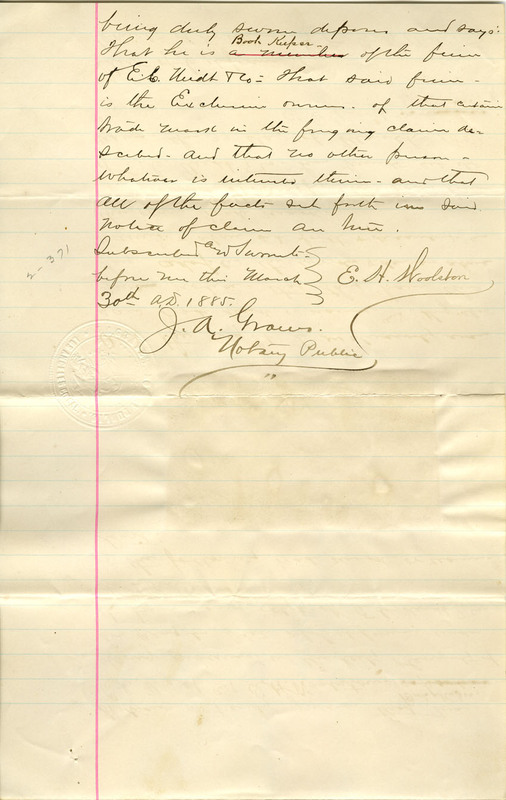 being duly sworn deposes and says:
That he is a member Book Keeper of the firm
of E.C. & Co - that said firm -
is the Exclusive owner - of that certain
trade mark in the forgoing claim de-
scribed - and that no other person -
whatever is interested therein - and that
all of the facts set forth in said
notice of claim are true.
Subscribed and Sworn to
before me this March E. H. Woolston
30th A.D. 1885.
J. A. Graves.
Notary Public
2-371